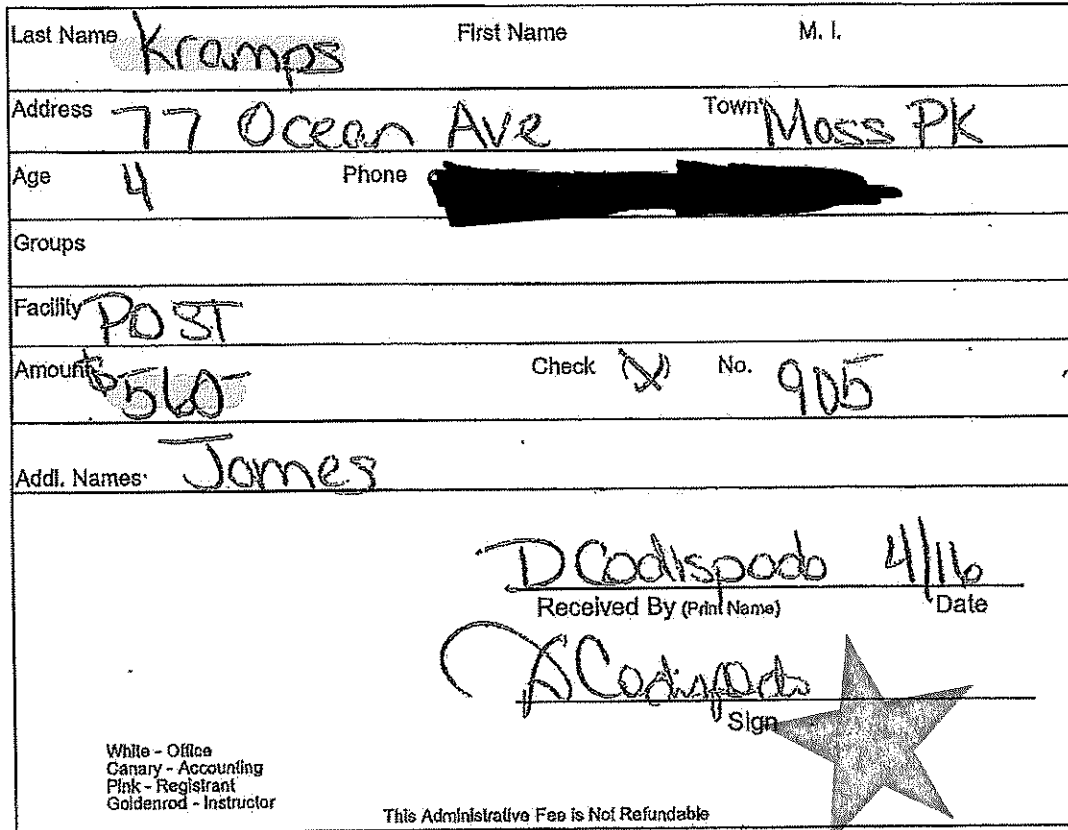 Last Name Kramps First Name M. I.
Address 77 Ocean Ave Town Mass PK
Age 4 Phone
Groups
Facility POST
Amount $560- Check (X) No. 905
Addl. Names James
D Codispodo 4/16
Received By (Print Name) Date
D Codispodo
Sign
White - Office
Canary - Accounting
Pink - Registrant
Goldenrod - Instructor
This Administrative Fee is Not Refundable